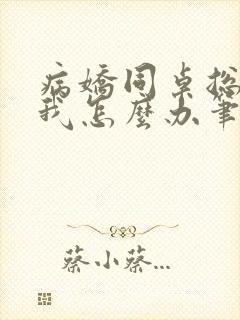 病嬌同桌總
我怎麼办筆
蔡小蔡...